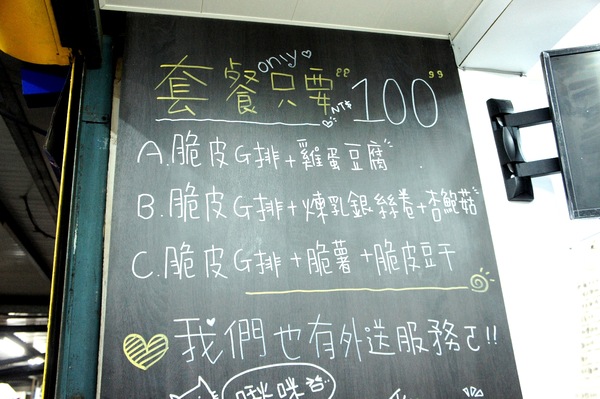 only
套餐只要 NT$ "100"
A.脆皮G排+雞蛋豆腐
B.脆皮G排+煉乳銀絲卷+杏鮑菇
C.脆皮G排+脆薯+脆皮豆干
我們也有外送服務ㄛ!!